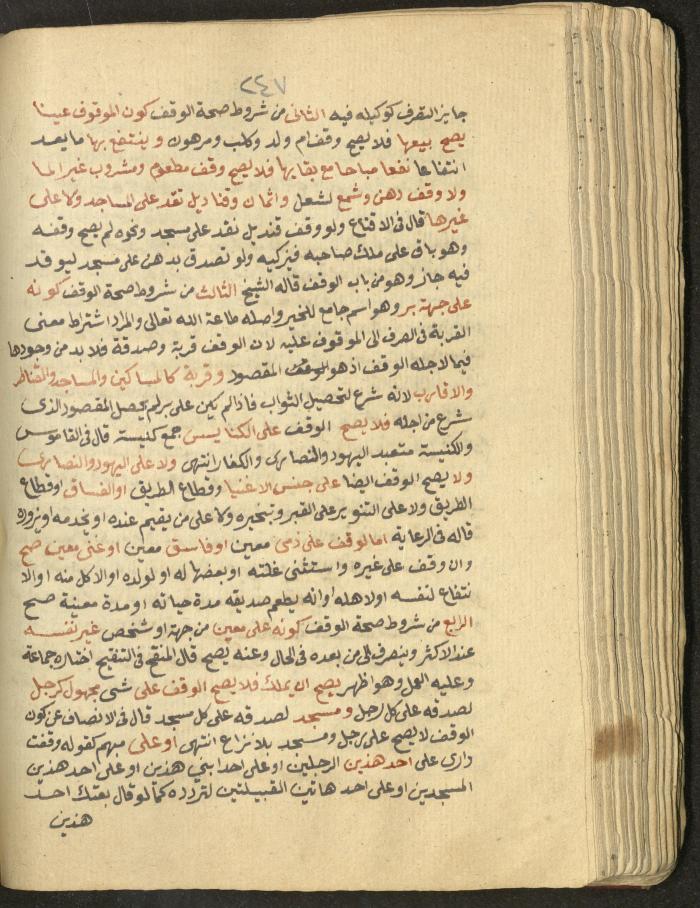 ٢٤٧
جايز التصرف كوكيله فيه الثاني من شروط صحة الوقف كون الموقوف عينا
يصح بيعها فلا يصح وقف ام ولد وكلب ومرهون وينتفع بها ما يعد
انتفاعا نفعا مباحا مع بقايها فلا يصح وقف مطعوم ومشروب غير الما
ولا وقف دهن وشمع لشعل واثمان وقناديل نقد على المساجد ولا على
غيرها قال في الاقناع ولو وقف قنديل نقد على مسجد ونحوه لم يصح وقفه
وهو باق على ملك صاحبه فيزكيه ولو تصدق بدهن على مسجد ليوقد
فيه جاز وهو من باب الوقف قاله الشيخ الثالث من شروط صحة الوقف كونه
على جهة بر وهو اسم جامع للخير واصله طاعة الله تعالى والمراد اشتراط معنى
القربة في الصرف الى الموقوف عليه لان الوقف قربة وصدقة فلا بد من وجودها
فيما لاجله الوقف اذ هو المقصود وقربة كالمساكين والمساجد والقناطر
والاقارب لانه شرع لتحصيل الثواب فاذا لم يكن على بر لم يحصل المقصود الذي
شرع من اجله فلا يصح الوقف على الكنايس جمع كنيسة قال في القاموس
والكنيسة متعبد اليهود والنصارى والكفار انتهى ولا على اليهود والنصارى
ولا يصح الوقف ايضا على جنس الاغنيا وقطاع الطريق او الفساق او قطاع
الطريق ولا على التنوير على القبر وتبخيره ولا على من يقيم عنده او يخدمه او يزوره
قاله في الرعاية اما الوقف على ذمي معين او فاسق معين او غني معين صح
وان وقف على غيره واستثنى غلته او بعضها له او لولده او الاكل منه او الا
نتفاع لنفسه او لاهله او انه يطعم صديقه مدة حياته او مدة معينة صح
الرابع من شروط صحة الوقف كونه على معين من جهة او شخص غير نفسه
عند الاكثر وينصرف الى من بعده في الحال وعنه يصح قال المنقح في التنقيح اختاره جماعة
وعليه العمل وهو اظهر يصح ان يملك فلا يصح الوقف على شي مجهول كرجل
لصدقه على كل رجل ومسجد لصدقه على كل مسجد قال في الانصاف عن كون
الوقف لا يصح على رجل ومسجد بلا نزاع انتهى او على مبهم كقوله وقفت
داري على احد هذين الرجلين او على احد ابني هذين او على احد هذين
المسجدين او على احد هاتين القبيلتين لتردده كما لو قال بعتك احد
هذين